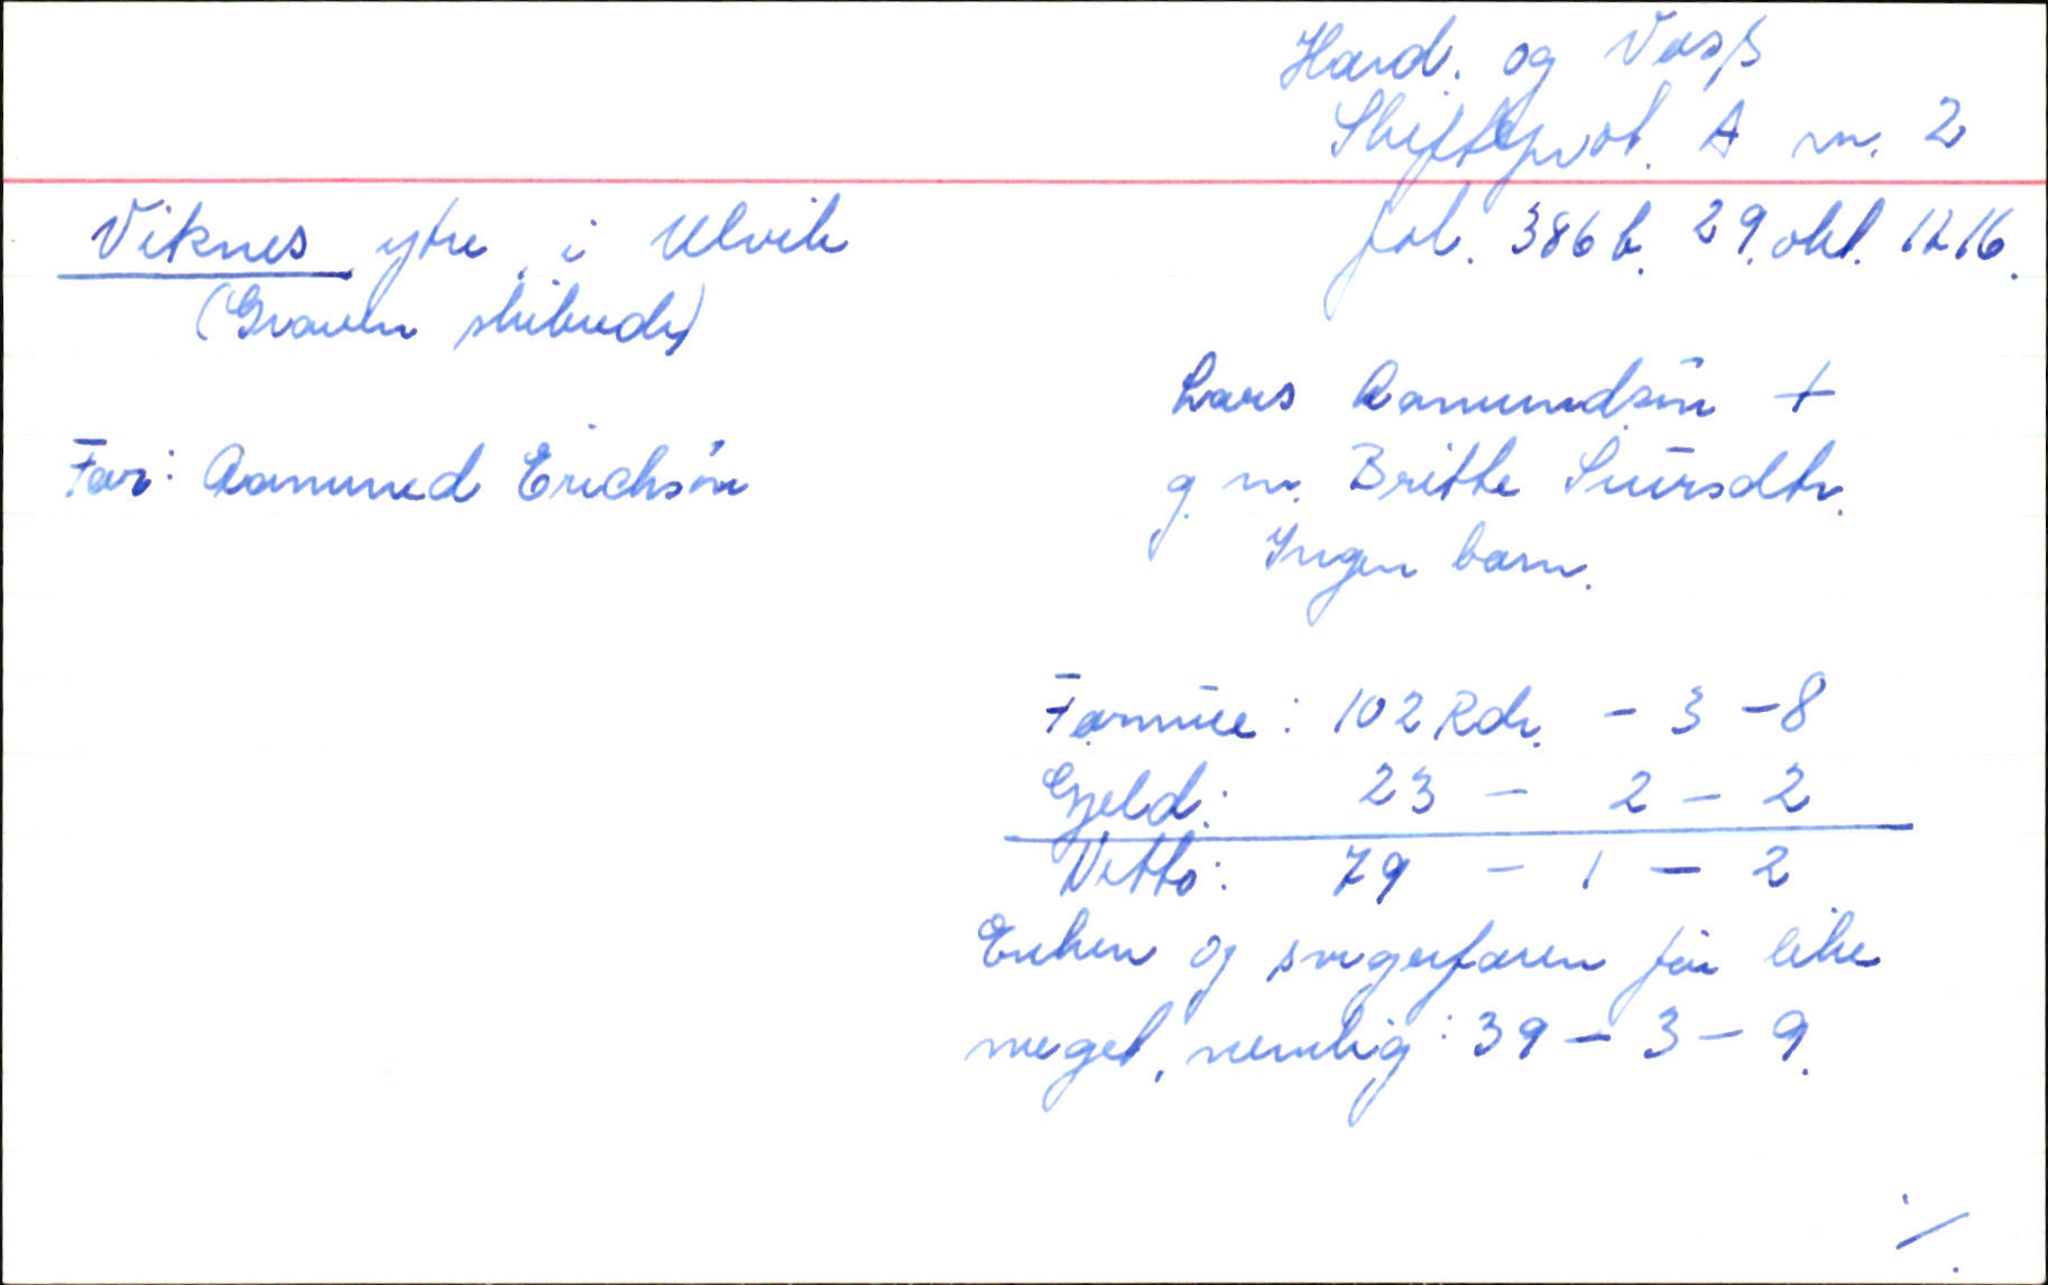 Hard. og Voss
Skifteprot. A nr. 2
Viknes ytre i Ulvik
fol. 386 b. 29. okt. 1716.
(Graven skibrede)
Lars Aamundsøn +
Far: Aamund Erichsøn
g. m. Britte Siursdtr.
Ingen barn.
Formue: 102 Rdr. - 3 - 8
Gjeld: 23 - 2 - 2
Netto: 79 - 1 - 2
Enken og svigerfaren får like
meget, nemlig: 39 - 3 - 9.
·/.